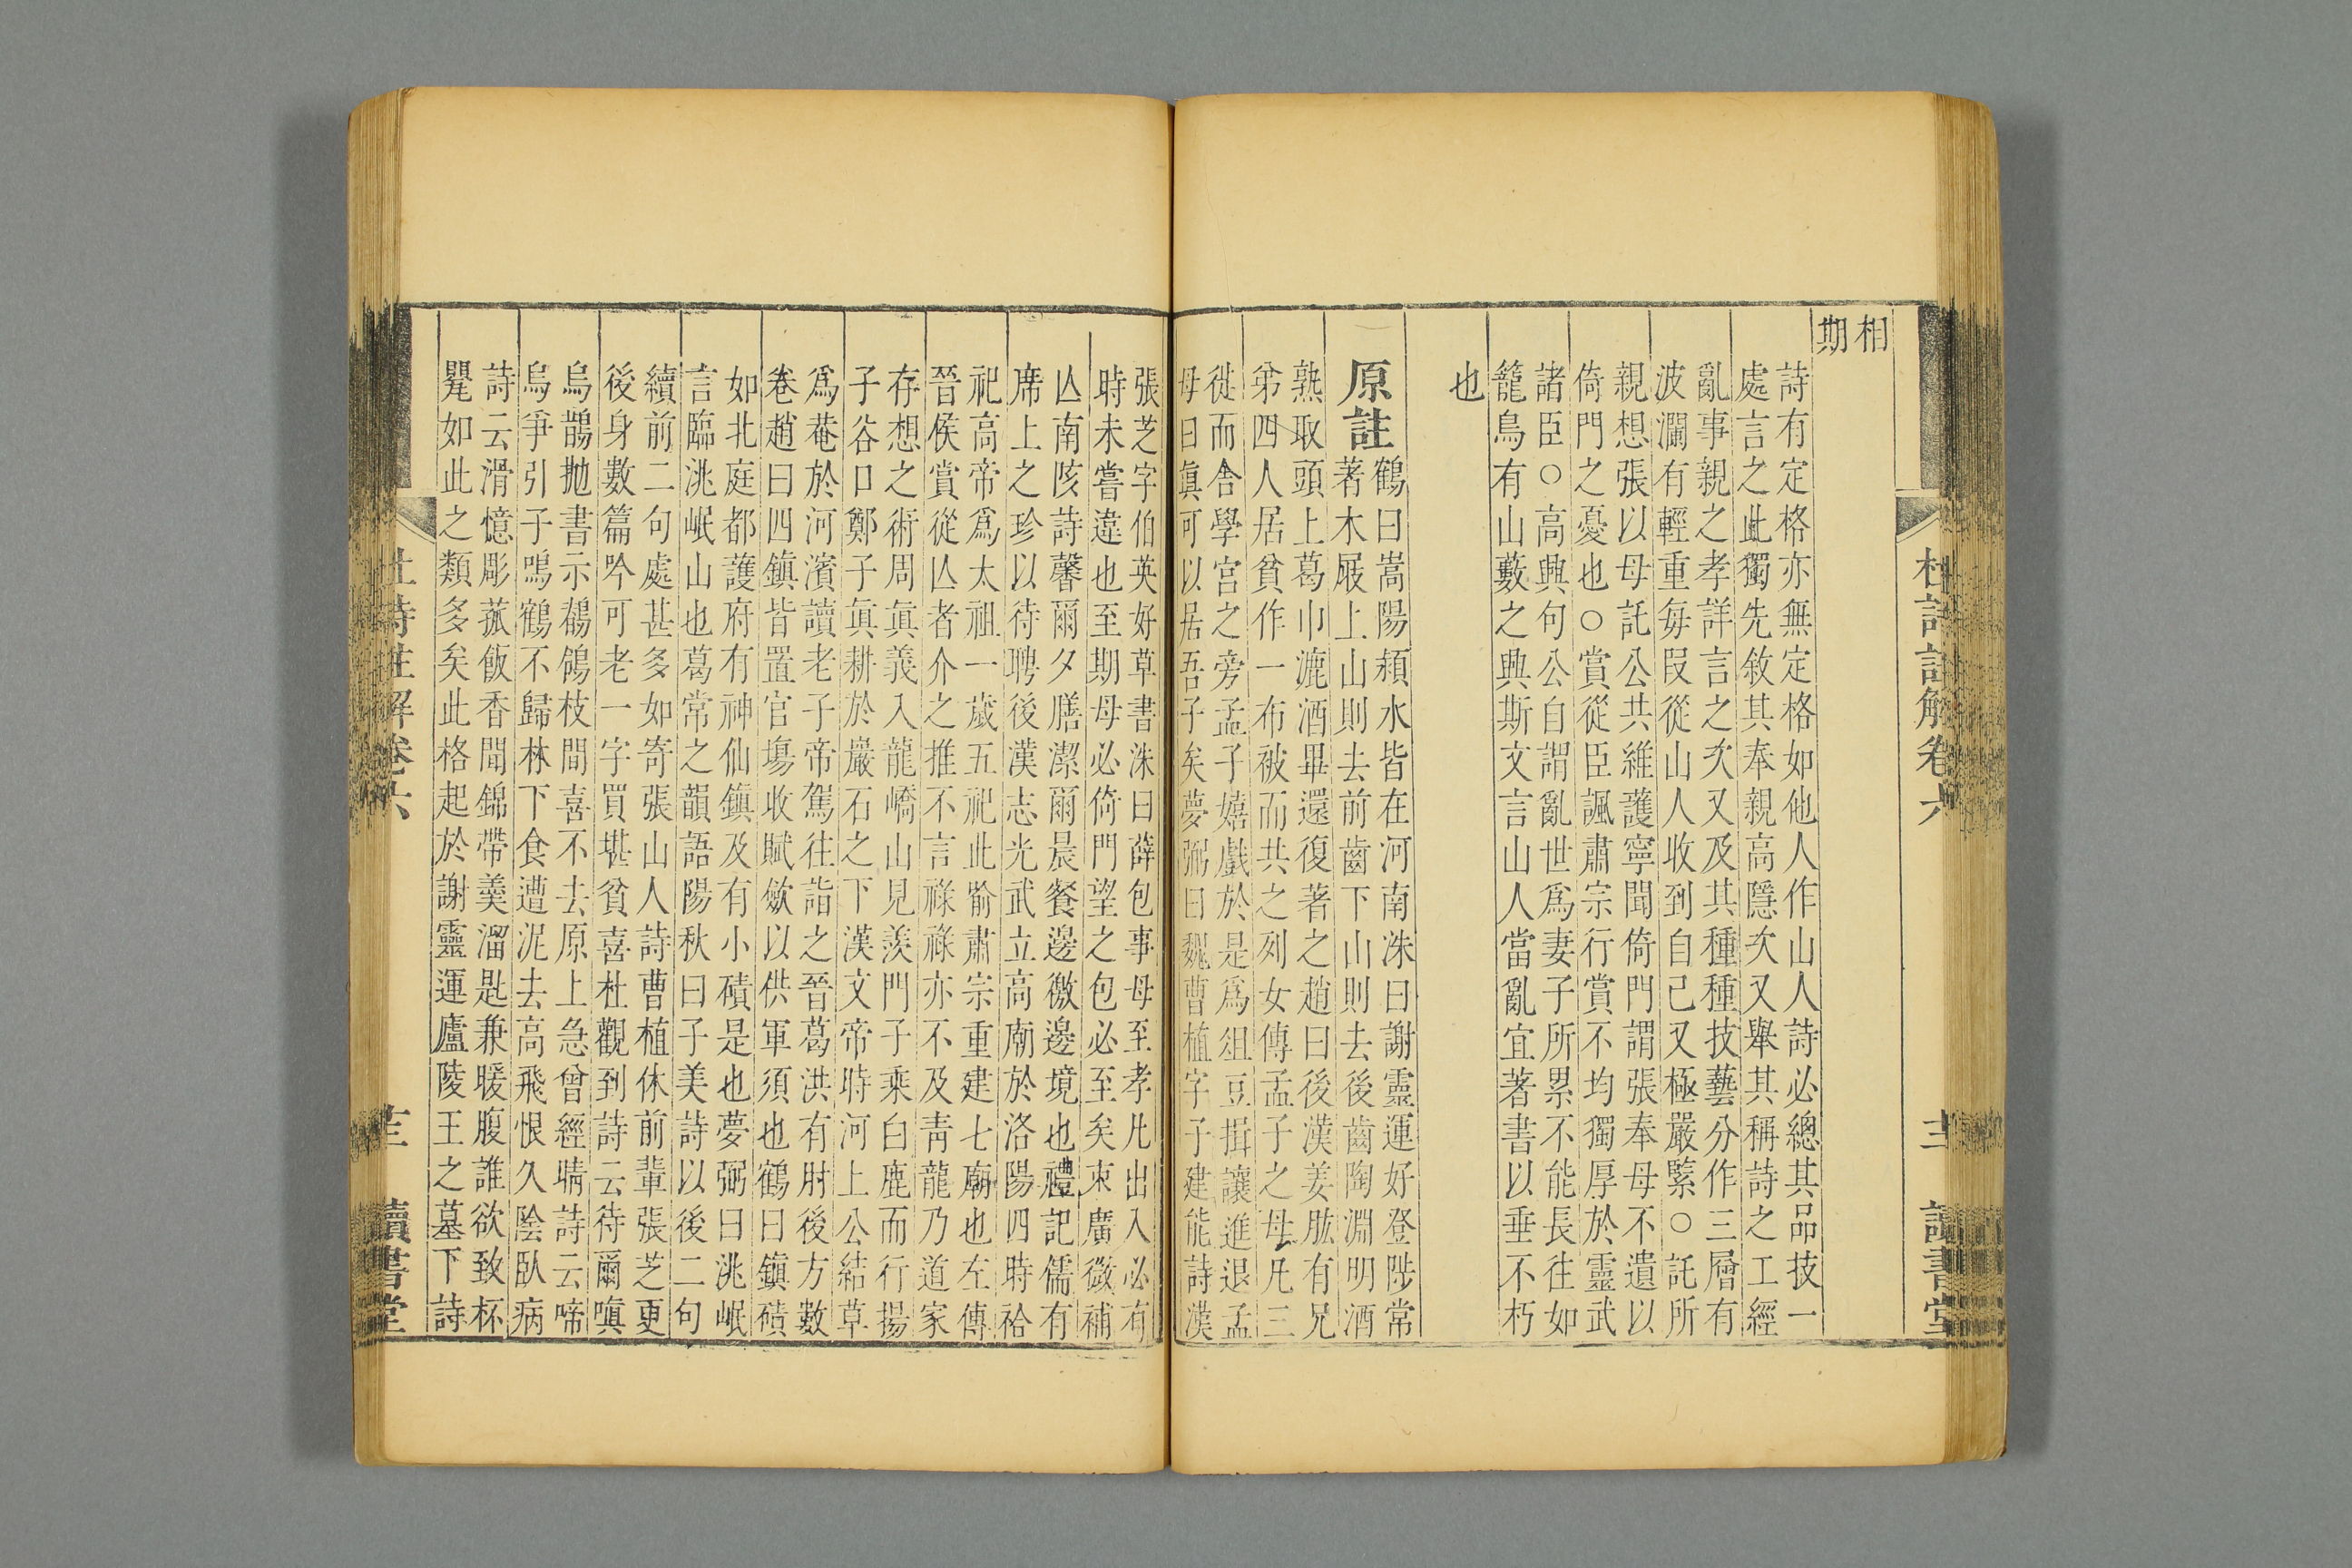 杜詩註解卷六
十二
讀書堂
相
期
詩有定格亦無定格如他人作山人詩必總其品技一
處言之此獨先敘其奉親高隱次又舉其稱詩之工經
亂事親之孝詳言之次又及其種種技藝分作三層有
波瀾有輕重每段從山人收到自己又極嚴緊○託所
親想張以母託公共維護寧聞倚門謂張奉母不遺以
倚門之憂也○賞從臣諷肅宗行賞不均獨厚於靈武
諸臣○高興句公自謂亂世爲妻子所累不能長往如
籠鳥有山藪之興斯文言山人當亂宜著書以垂不朽
也
原註
鶴曰嵩陽頛水皆在河南洙曰謝靈運好登陟常
著木屐上山則去前齒下山則去後齒陶淵明酒
熟取頭上葛巾漉酒畢還復著之趙曰後漢姜肱有兄
弟四人居貧作一布被而共之列女傳孟子之母凡三
徙而舍學宮之旁孟子嬉戲於是爲俎豆揖讓進退孟
母曰眞可以居吾子矣夢弼曰魏曹植字子建能詩漢
張芝字伯英好草書洙曰薛包事母至孝凡出入必有
時未嘗違也至期母必倚門望之包必至矣束廣微補
亾南陔詩馨爾夕膳潔爾晨餐邊徼邊境也禮記儒有
席上之珍以待聘後漢志光武立高廟於洛陽四時祫
祀高帝爲太祖一歲五祀此喻肅宗重建七廟也左傳
晉侯賞從亾者介之推不言祿祿亦不及靑龍乃道家
存想之術周眞義入龍嶠山見羨門子乘白鹿而行揚
子谷口鄭子眞耕於巖石之下漢文帝時河上公結草
爲菴於河濱讀老子帝駕往詣之晉葛洪有肘後方數
卷趙曰四鎭皆置官塲收賦歛以供軍須也鶴曰鎭磧
如北庭都護府有神仙鎭及有小磧是也夢弼曰洮岷
言臨洮岷山也葛常之韻語陽秋曰子美詩以後二句
續前二句處甚多如寄張山人詩曹植休前輩張芝更
後身數篇吟可老一字買堪貧喜杜觀到詩云待爾嗔
烏鵲抛書示鶺鴒枝間喜不去原上急曾經晴詩云啼
烏爭引子鳴鶴不歸林下食遭泥去高飛恨久陰臥病
詩云滑憶彫菰飯香聞錦帶羹溜匙兼暖腹誰欲致杯
罌如此之類多矣此格起於謝靈運廬陵王之墓下詩
杜詩註解卷六
十三
讀書堂